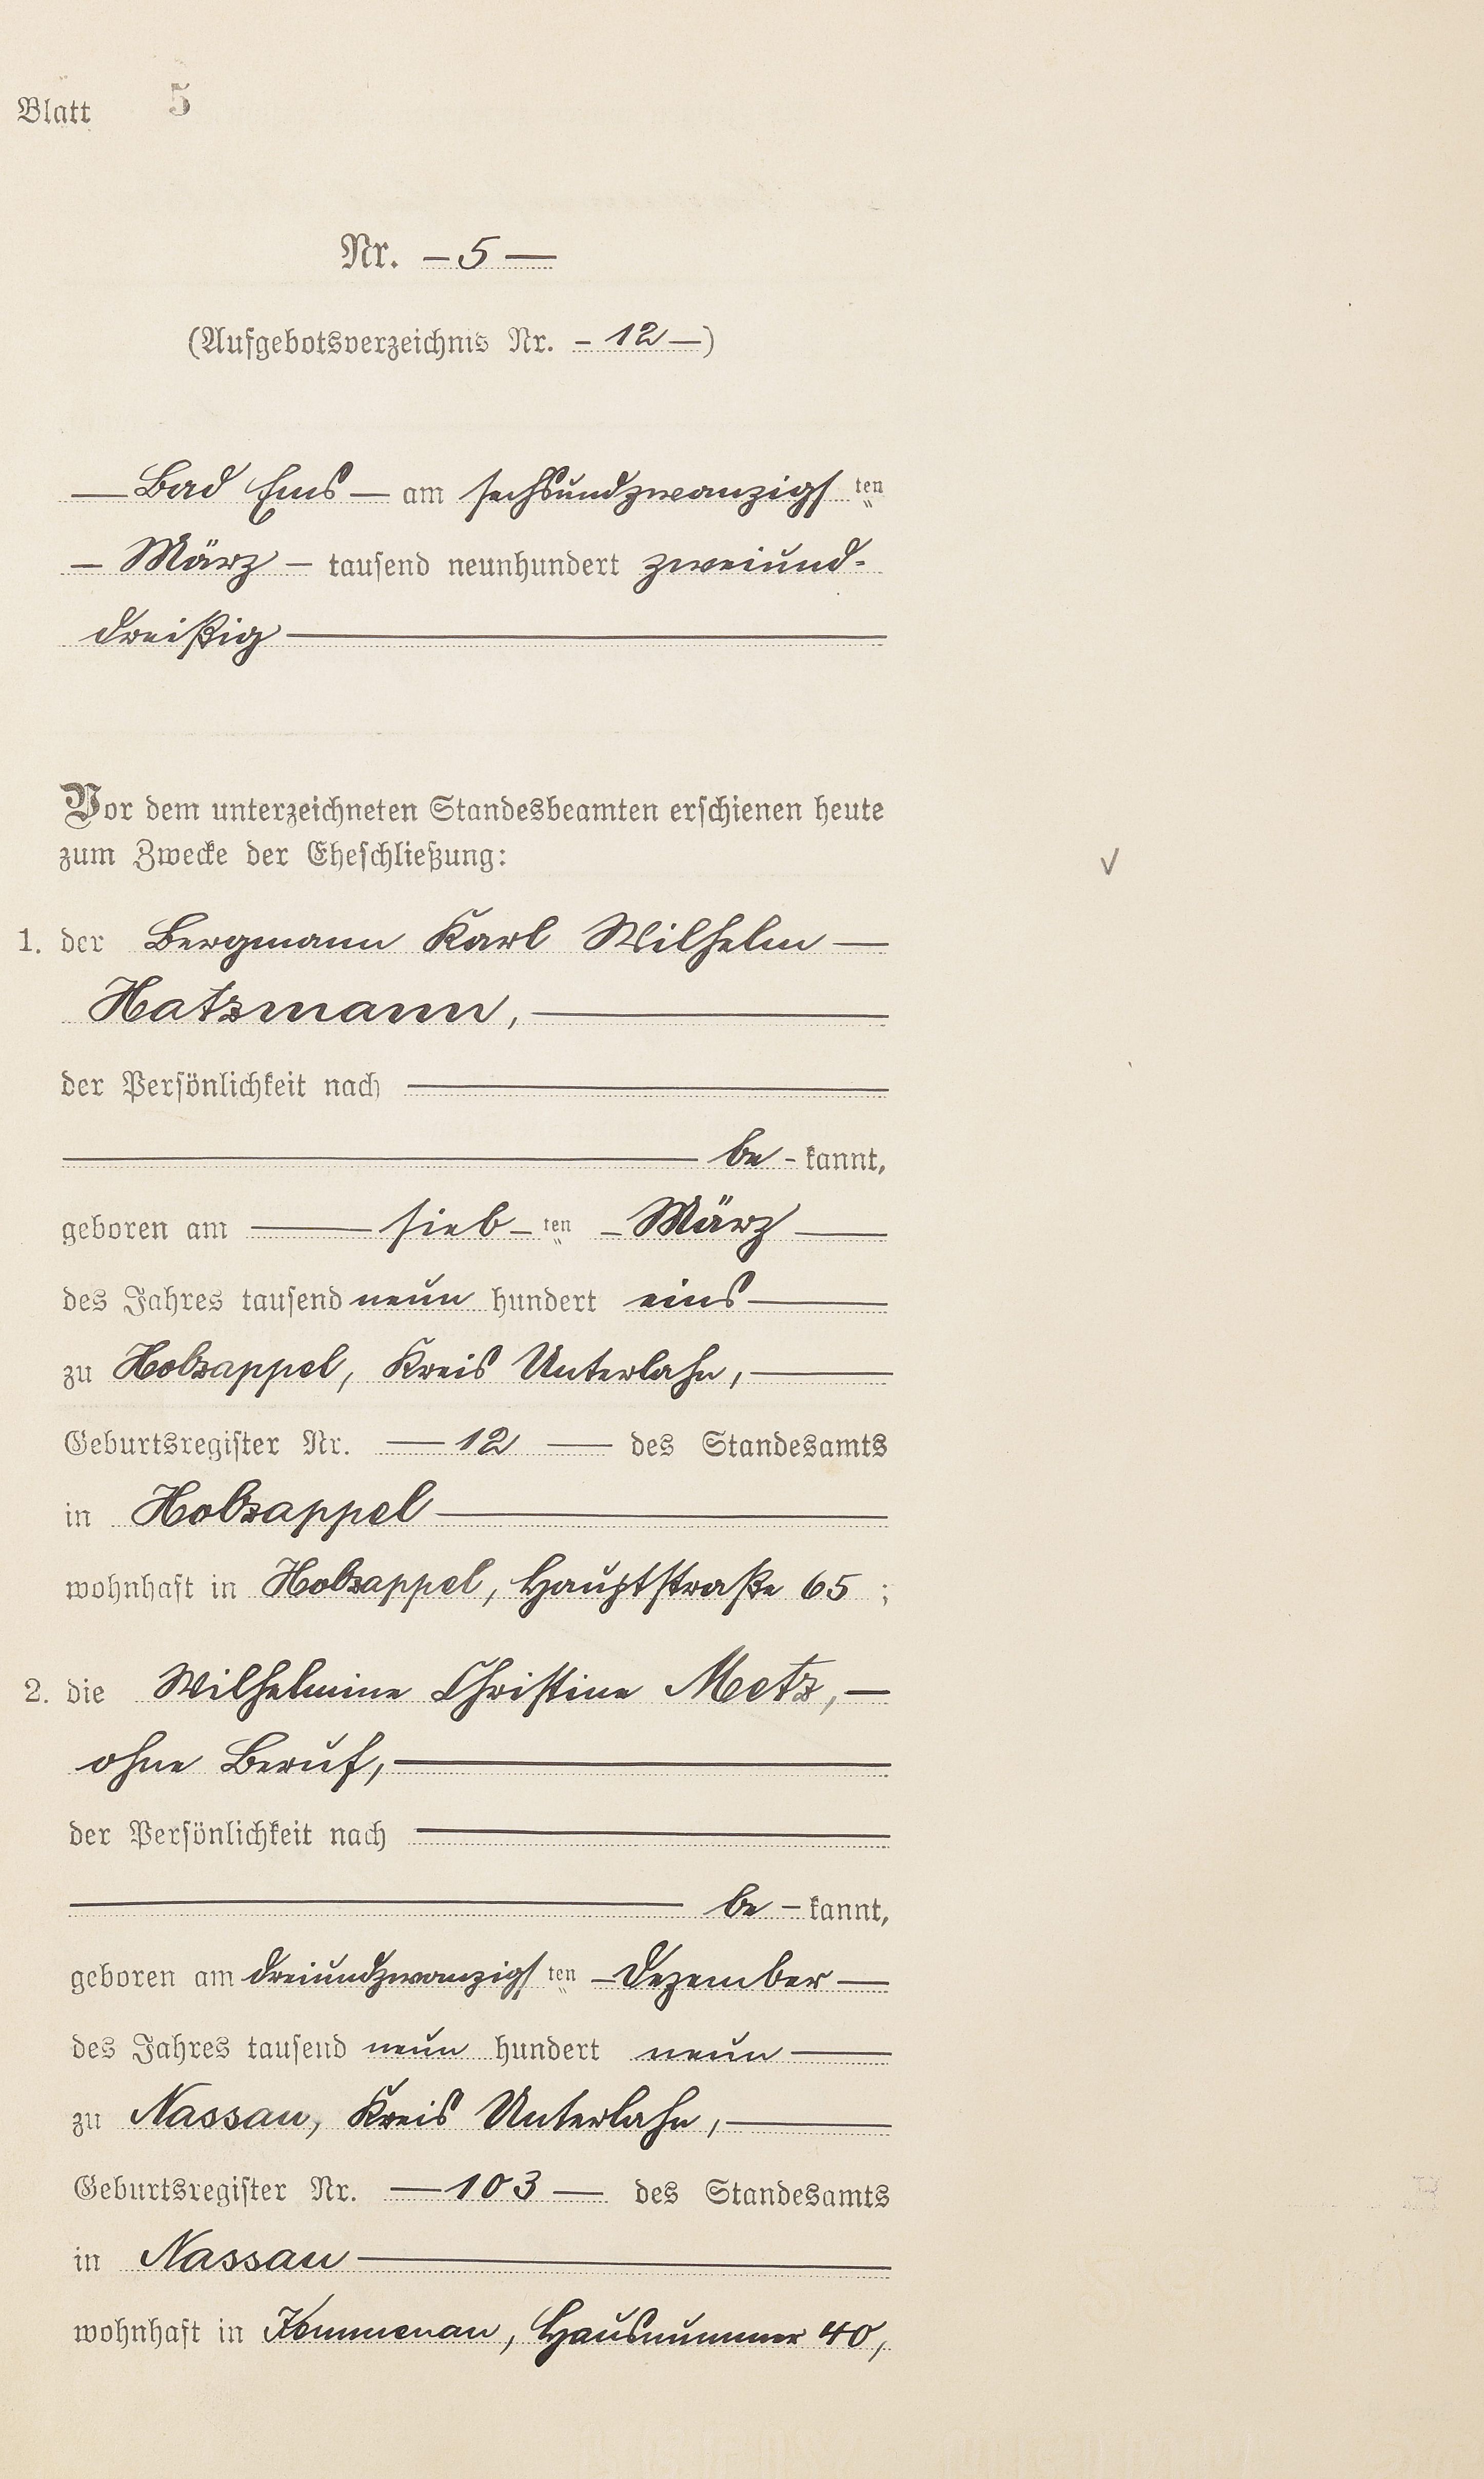 Blatt 5
Nr. – 5 —
(Aufgebotsverzeichnis Nr. – 12 —)
— Bad Ems — am sechsundzwanzigs ten
– März – tausend neunhundert zweiund-
dreißig —
Vor dem unterzeichneten Standesbeamten erschienen heute
zum Zwecke der Eheschließung:
1. der Bergmann Karl Wilhelm —
Hatzmann, —
der Persönlichkeit nach —
— be - kannt,
geboren am — sieb – ten – März —
des Jahres tausend neun hundert eins —
zu Holzappel, Kreis Unterlahn, —
Geburtsregister Nr. — 12 — des Standesamts
in Holzappel —
wohnhaft in Holzappel, Hauptstraße 65 ;
2. die Wilhelmine Christine Metz, —
ohne Beruf, —
der Persönlichkeit nach —
— be – kannt,
geboren am dreiundzwanzigs ten – Dezember —
des Jahres tausend neun hundert neun —
zu Nassau, Kreis Unterlahn, —
Geburtsregister Nr. — 103 — des Standesamts
in Nassau —
wohnhaft in Kemmenau, Hausnummer 40,